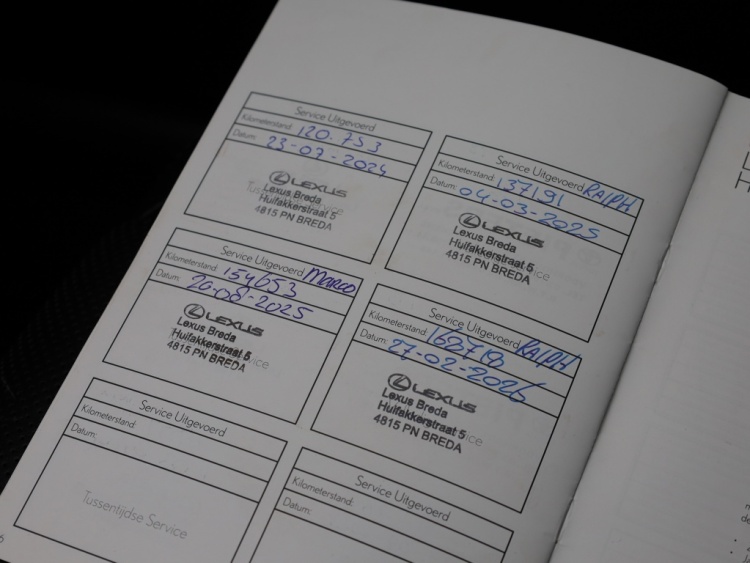 Service Uitgevoerd
Kilometerstand: 120.753
Datum: 23-07-2024
LEXUS
Lexus Breda
Huifakkerstraat 5
4815 PN BREDA
Service Uitgevoerd RALPH
Kilometerstand: 137191
Datum: 04-03-2025
LEXUS
Lexus Breda
Huifakkerstraat 5
4815 PN BREDA
Service Uitgevoerd MARCO
Kilometerstand: 154653
Datum: 26-08-2025
LEXUS
Lexus Breda
Huifakkerstraat 5
4815 PN BREDA
Service Uitgevoerd RALPH
Kilometerstand: 162718
Datum: 27-02-2026
LEXUS
Lexus Breda
Huifakkerstraat 5
4815 PN BREDA
Service Uitgevoerd
Kilometerstand:
Datum:
Tussentijdse Service
Service Uitgevoerd
Kilometerstand:
Datum: